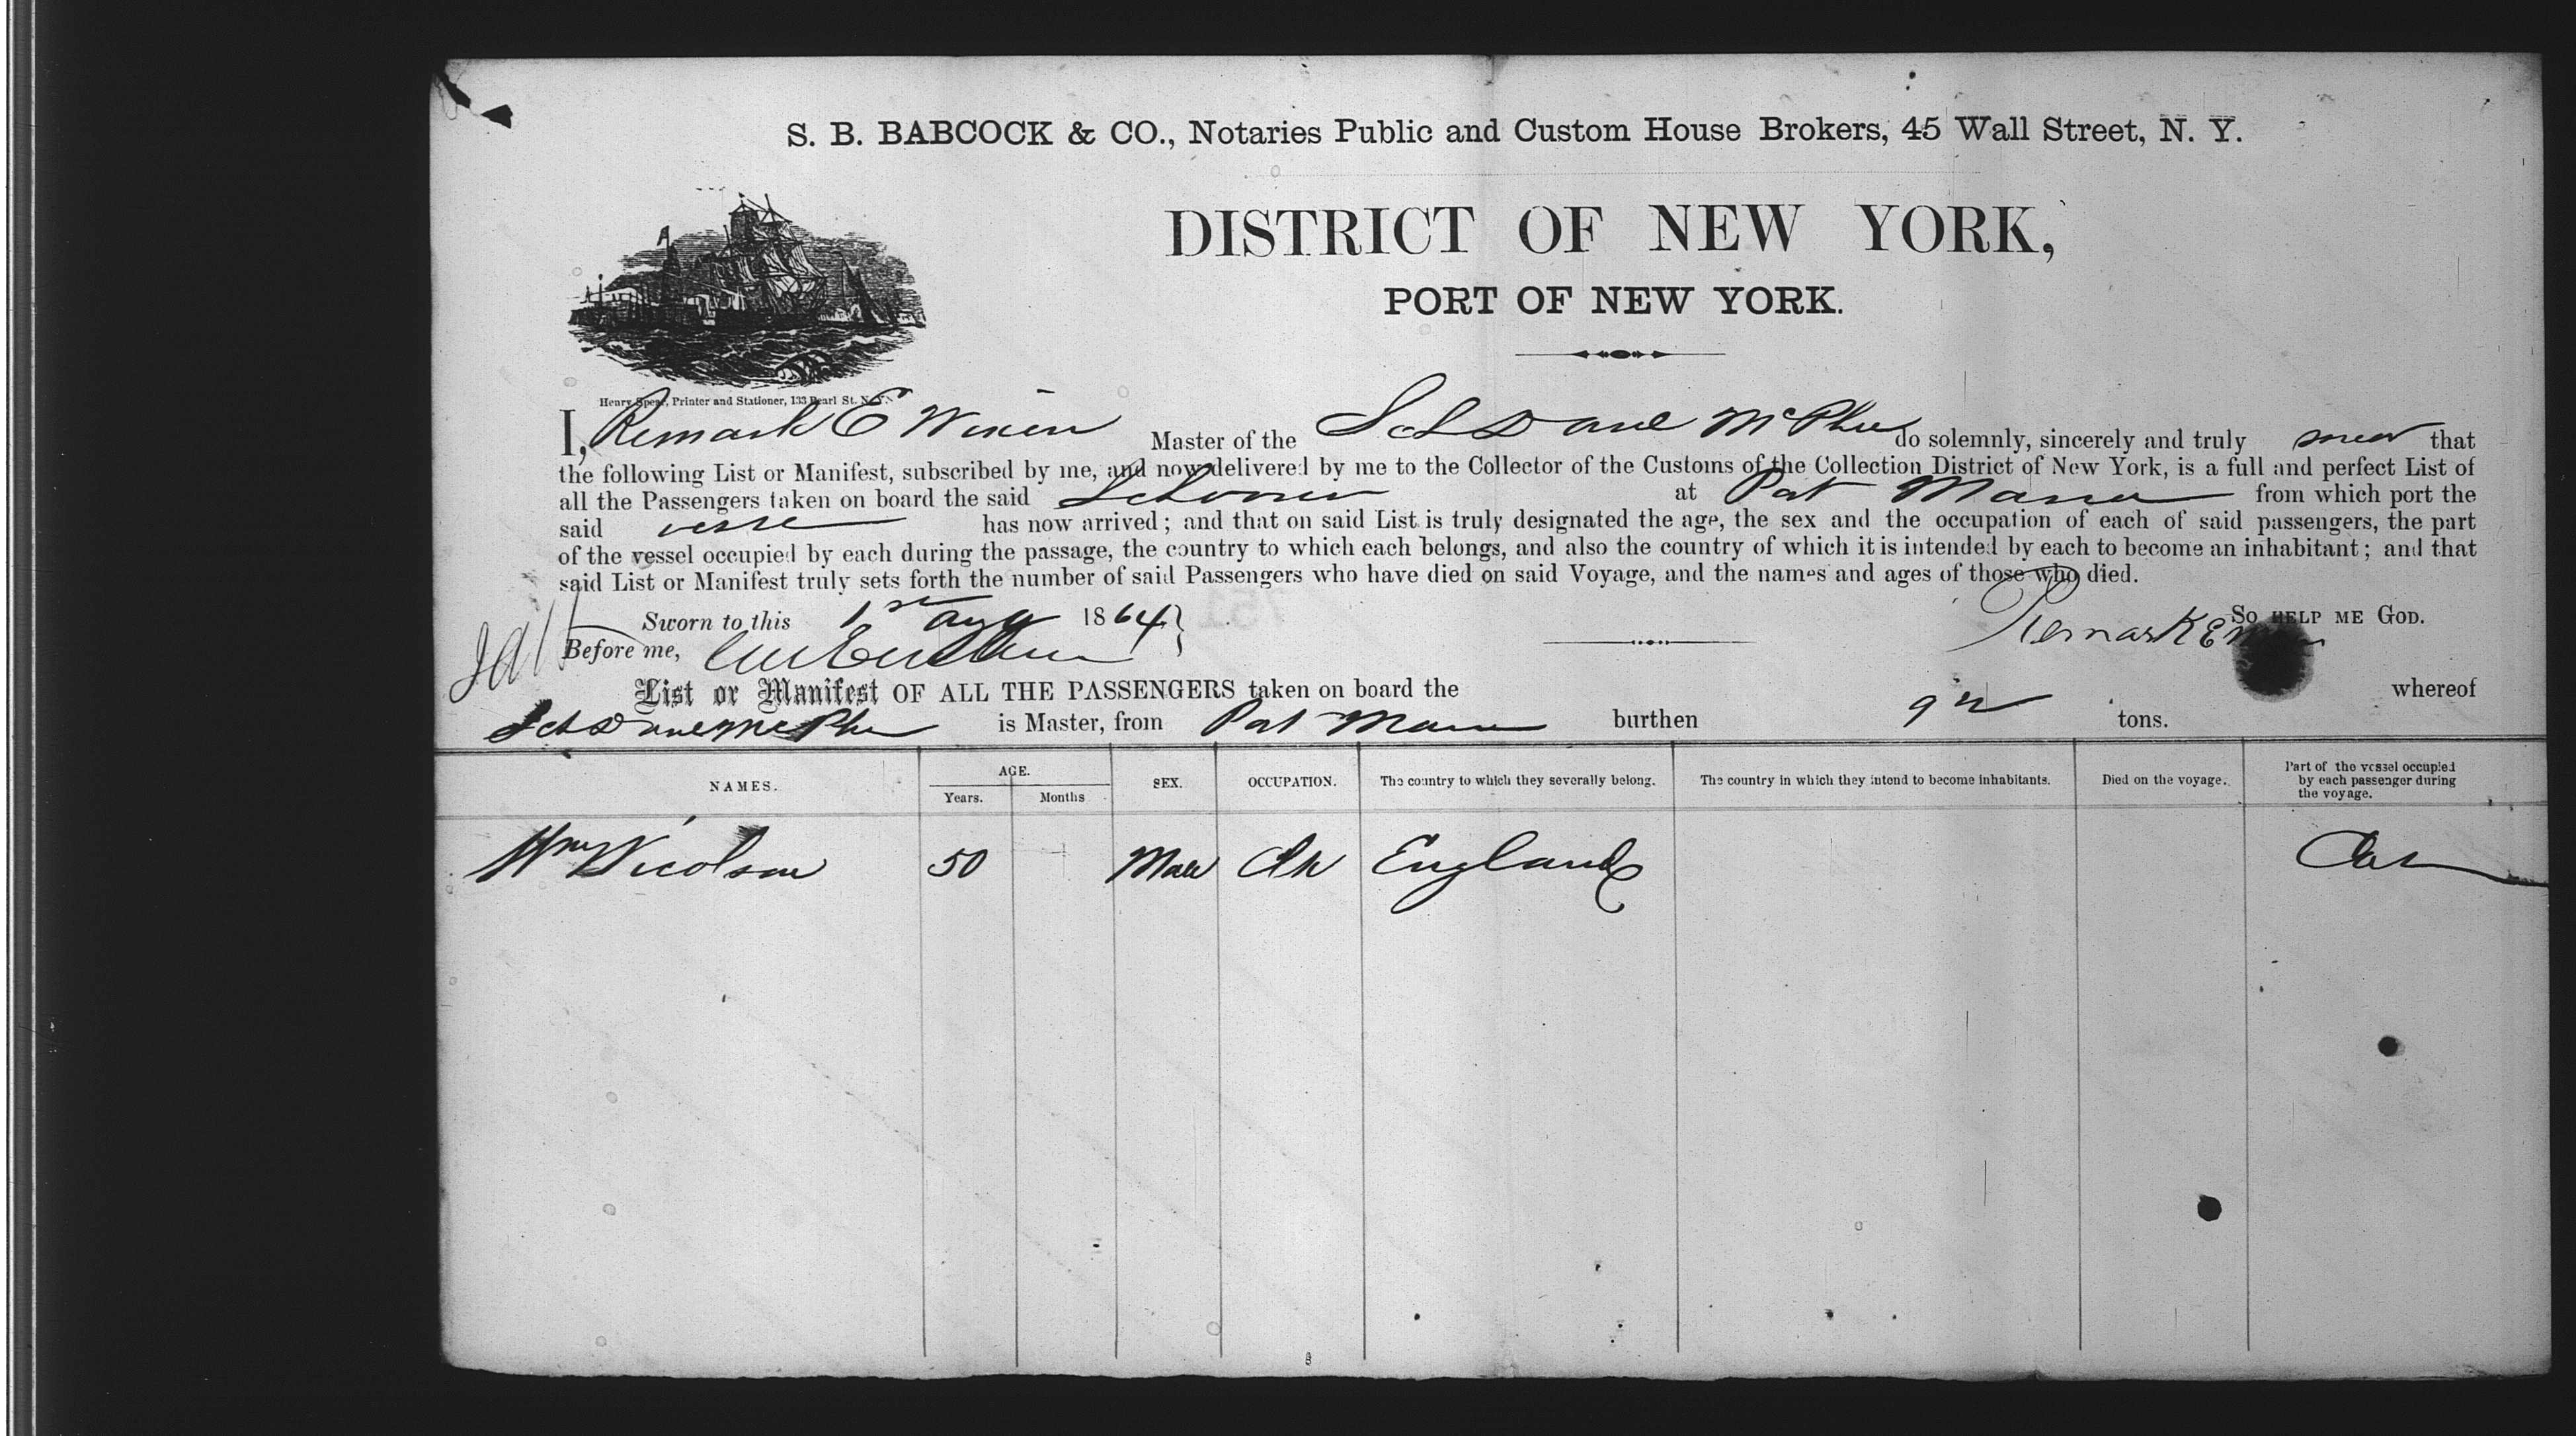 S. B. BABCOCK & CO., Notaries Public and Custom House Brokers, 45 Wall Street, N. Y.
DISTRICT OF NEW YORK,
PORT OF NEW YORK.
Henry Spear, Printer and Stationer, 133 Pearl St. N.Y.
I, Remark E Master of the Sch McPhee do solemnly, sincerely and truly swear that
the following List or Manifest, subscribed by me, and now delivered by me to the Collector of the Customs of the Collection District of New York, is a full and perfect List of
all the Passengers taken on board the said Schooner at Port Maria from which port the
said vessel has now arrived; and that on said List is truly designated the age, the sex and the occupation of each of said passengers, the part
of the vessel occupied by each during the passage, the country to which each belongs, and also the country of which it is intended by each to become an inhabitant; and that
said List or Manifest truly sets forth the number of said Passengers who have died on said Voyage, and the names and ages of those who died.
Sworn to this 1st Aug 1864} So HELP ME GOD.
Before me, Remark E
List or Manifest OF ALL THE PASSENGERS taken on board the whereof
Sch McPhee is Master, from Port Maria burthen tons.
NAMES. AGE. Years. Months SEX. OCCUPATION. The country to which they severally belong. The country in which they intend to become inhabitants. Died on the voyage. Part of the vessel occupied by each passenger during the voyage.
Wm Nicolson 50 Male England